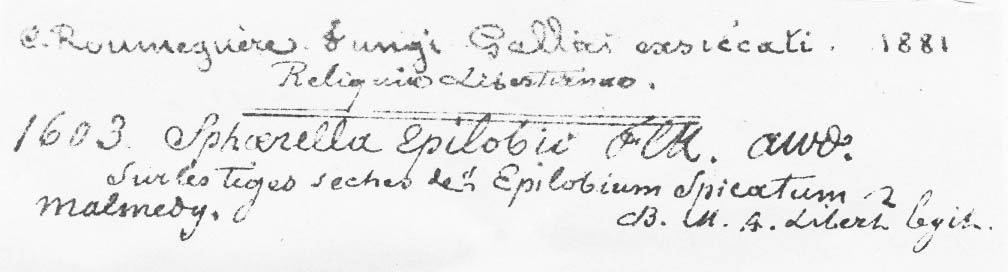 C. Roumeguère. Fungi Gallici exsiccati. 1881
Reliquiæ Libertianæ.
1603. Sphærella Epilobii Fckl. awd.
Sur les tiges seches de l'Epilobium Spicatum
Malmedy. M. A. Libert legit.